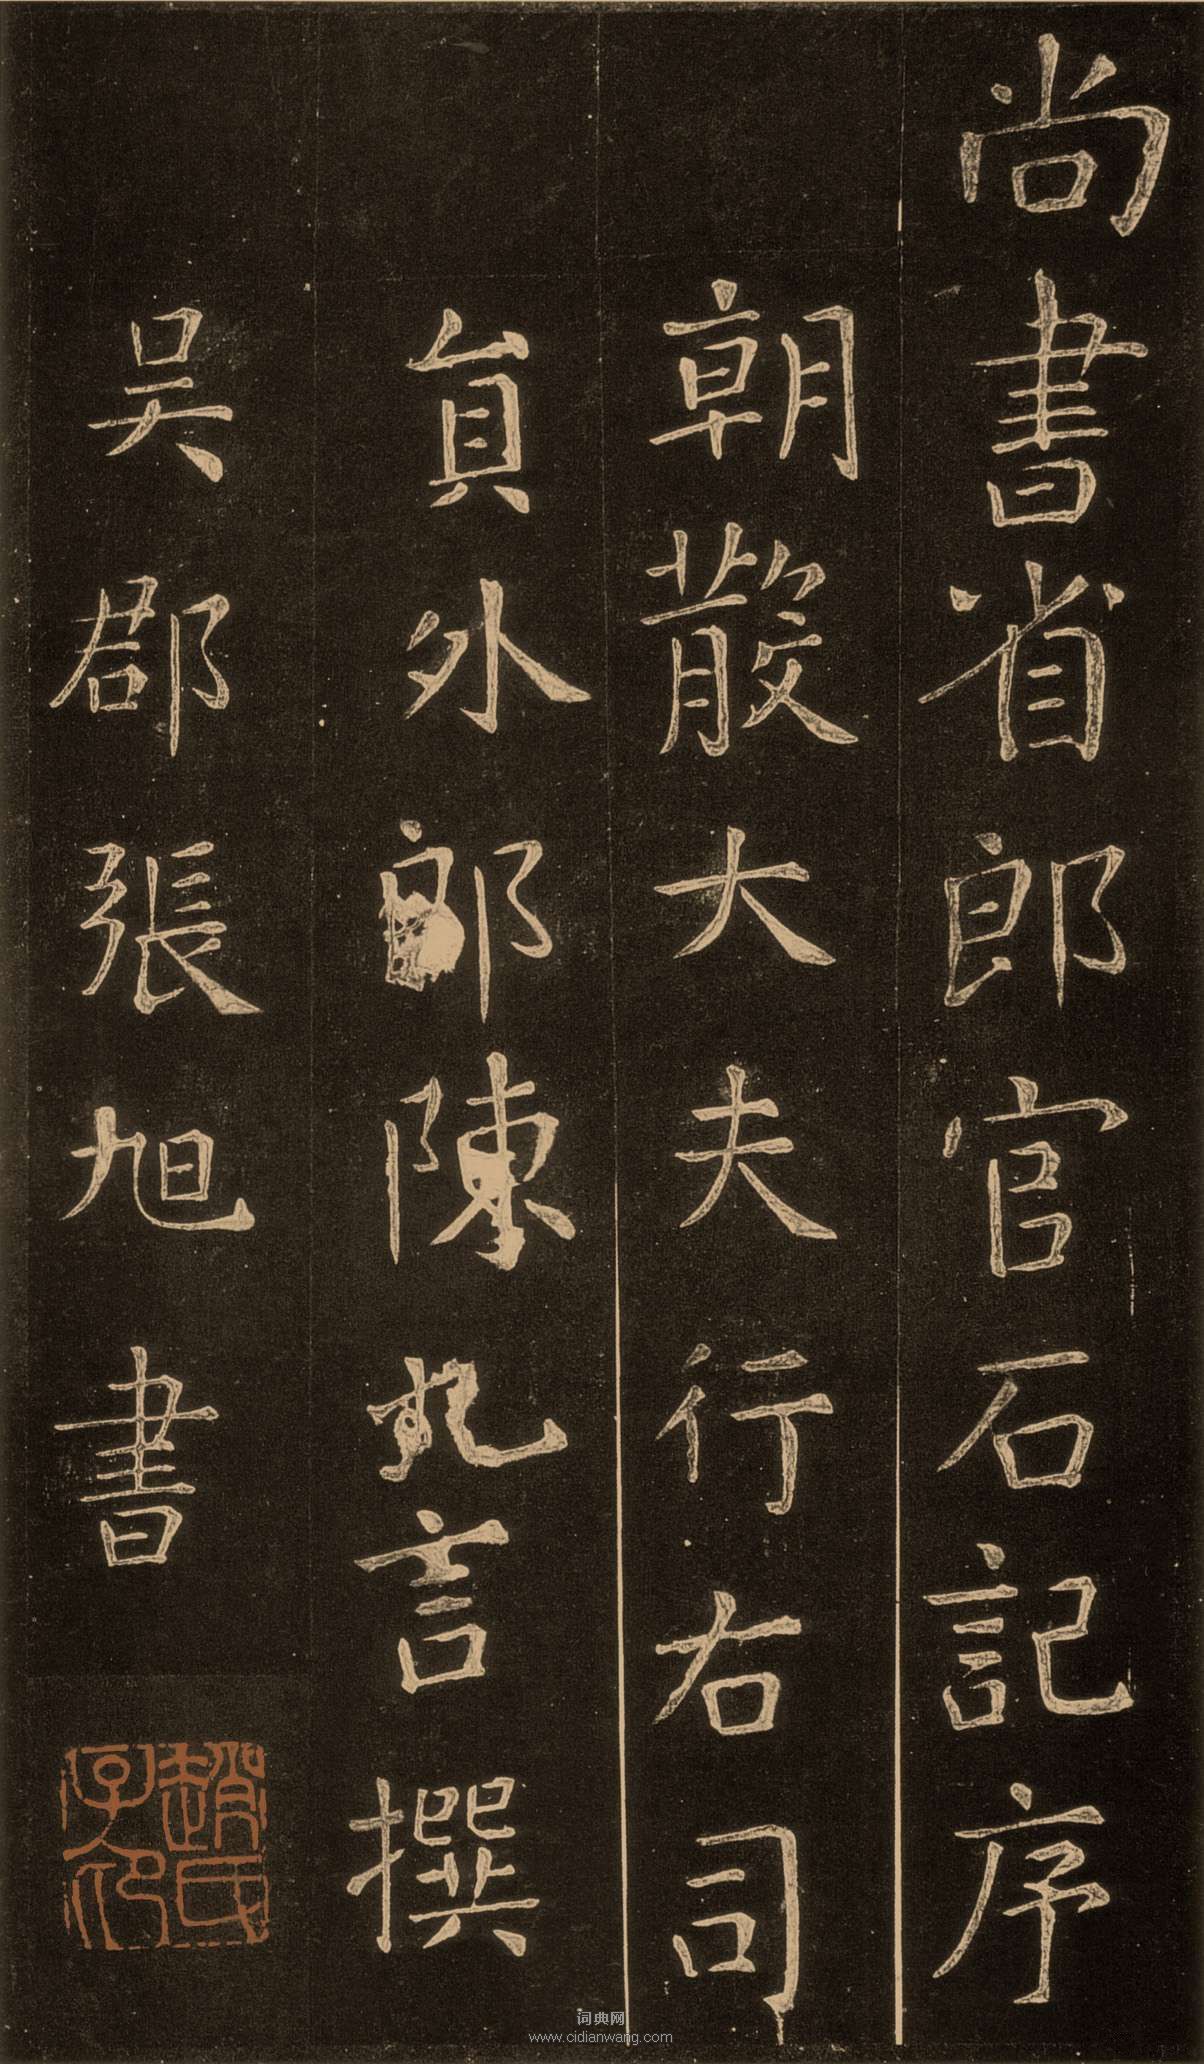 尚書省郎官石記序
朝散大夫行右司
貟外郎陳九言撰
吳郡張旭書
趙氏
子印
词典网
www.cidianwang.com